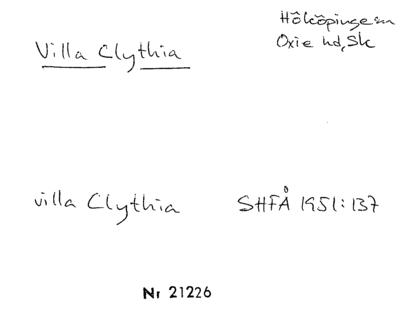 Villa Clythia
Hököpinge sn
Oxie hd, Sk
villa Clythia SHFÅ 1951:137
Nr 21226